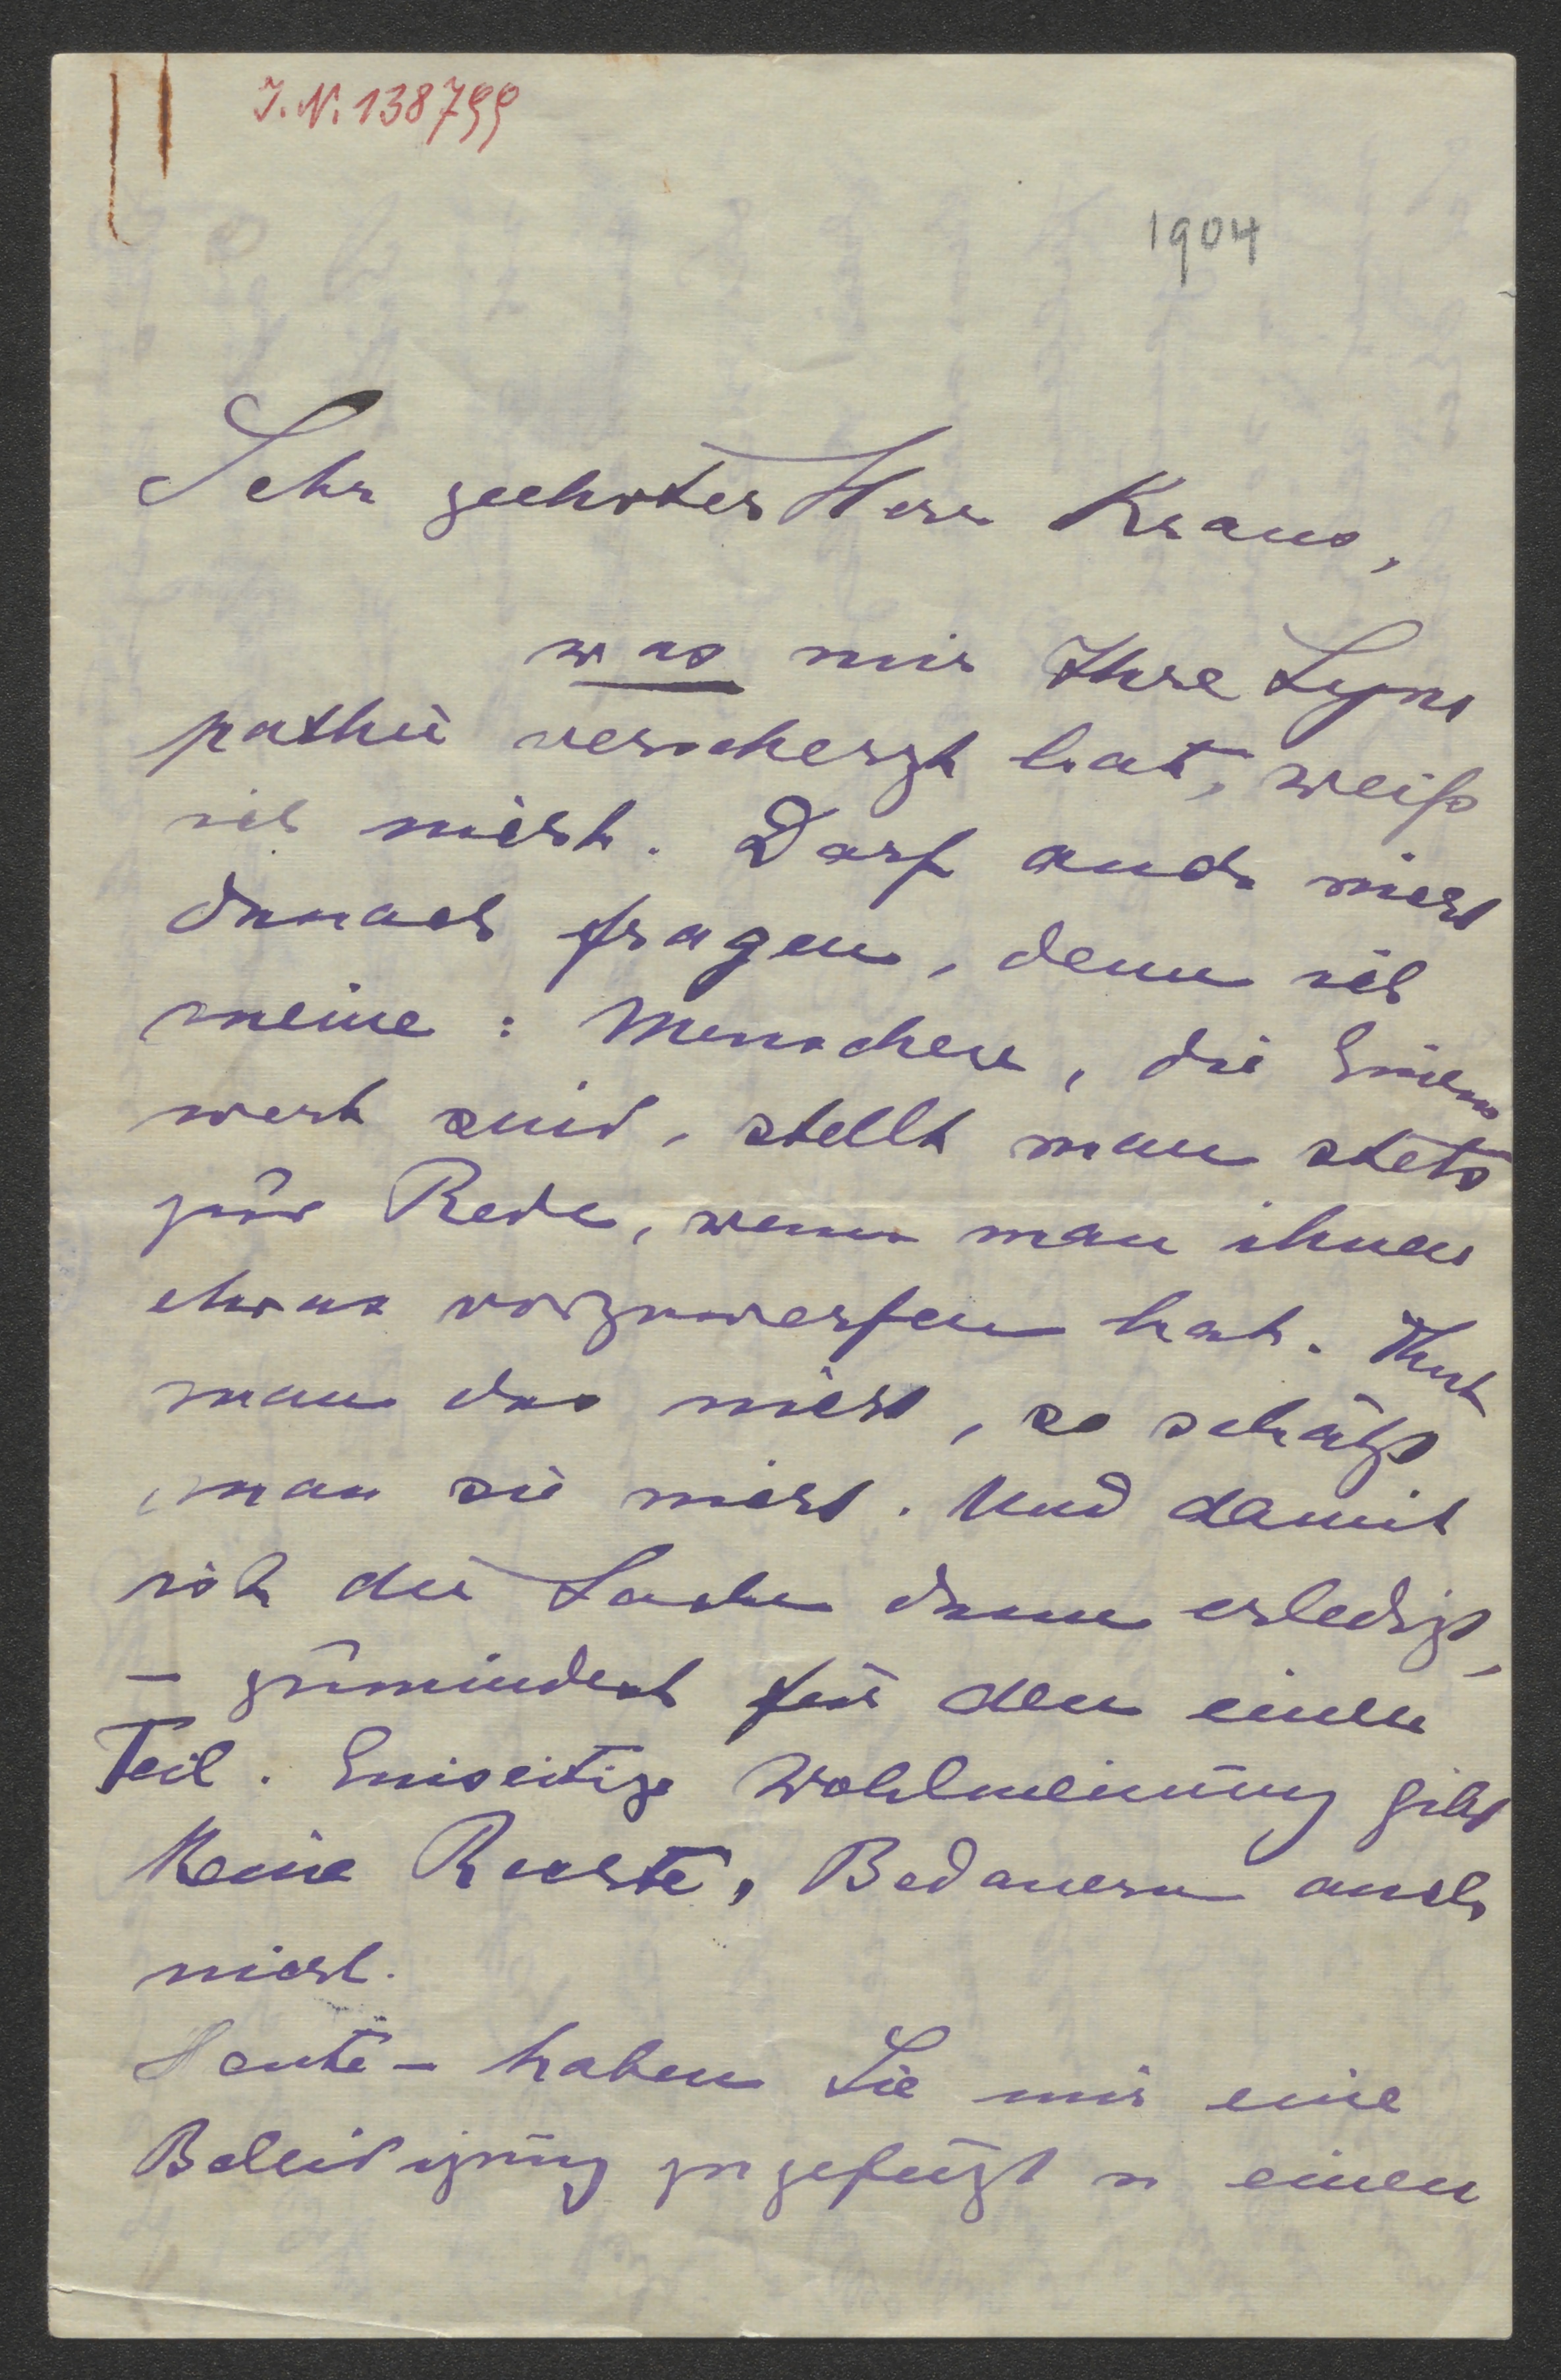 I.N. 138799
1904
Sehr geehrter Herr Kraus,
was mir Ihre Sym
pathie verscherzt hat, weiß
ich nicht. Darf auch nicht
danach fragen, denn ich
meine: Menschen, die Einem
wert sind, stellt man stets
zur Rede, wenn man ihnen
etwas vorzuwerfen hat. Thut
man das nicht, so schätzt
man sie nicht. Und damit
ist die Sache dann erledigt,
– zumindest für den einen
Teil. Einseitige Wohlmeinung gibt
keine Rechte, Bedauern auch
nicht.
Heute – haben Sie mir eine
Beleidigung zugefügt u einen